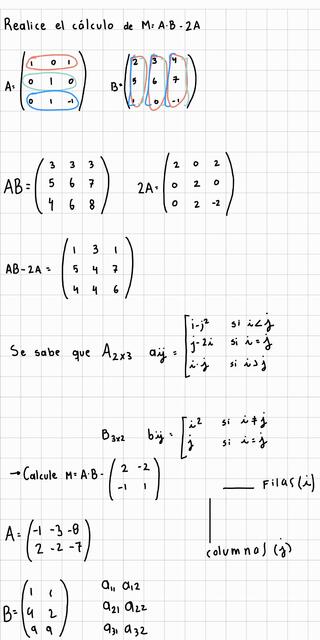 Realice el cálculo de M = A·B - 2A
A = ( 1 0 1 B = ( 2 3 4
0 1 0 5 6 7
0 1 -1 ) 1 0 -1 )
AB = ( 3 3 3 2A = ( 2 0 2
5 6 7 0 2 0
4 6 8 ) 0 2 -2 )
AB - 2A = ( 1 3 1
5 4 7
4 4 6 )
Se sabe que A2x3 aij = [ i-j² si i<j
j-2i si i=j
i·j si i>j
B3x2 bij = [ i² si i≠j
j si i=j
→ Calcule M = A·B - ( 2 -2
-1 1 )
Filas (i)
columnas (j)
A = ( -1 -3 -8
2 -2 -7 )
B = ( 1 1 a11 a12
4 2 a21 a22
9 9 ) a31 a32